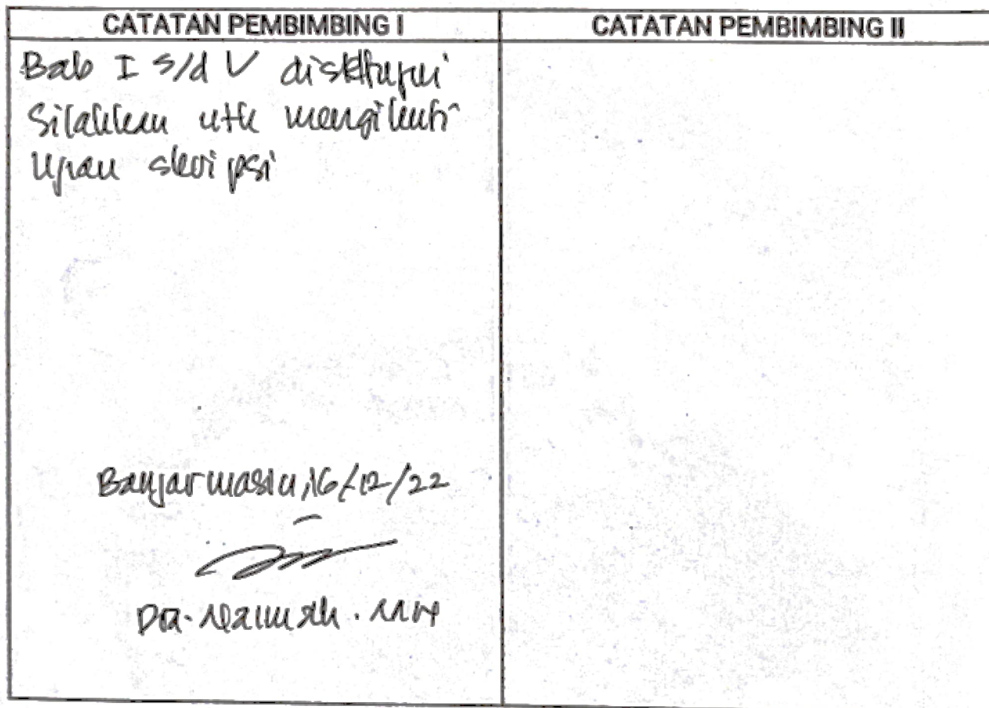 CATATAN PEMBIMBING I
CATATAN PEMBIMBING II
Bab I s/d V disetujui
Silahkan utk mengikuti
Ujian skripsi
Banjarmasin, 16/12/22
Dra.